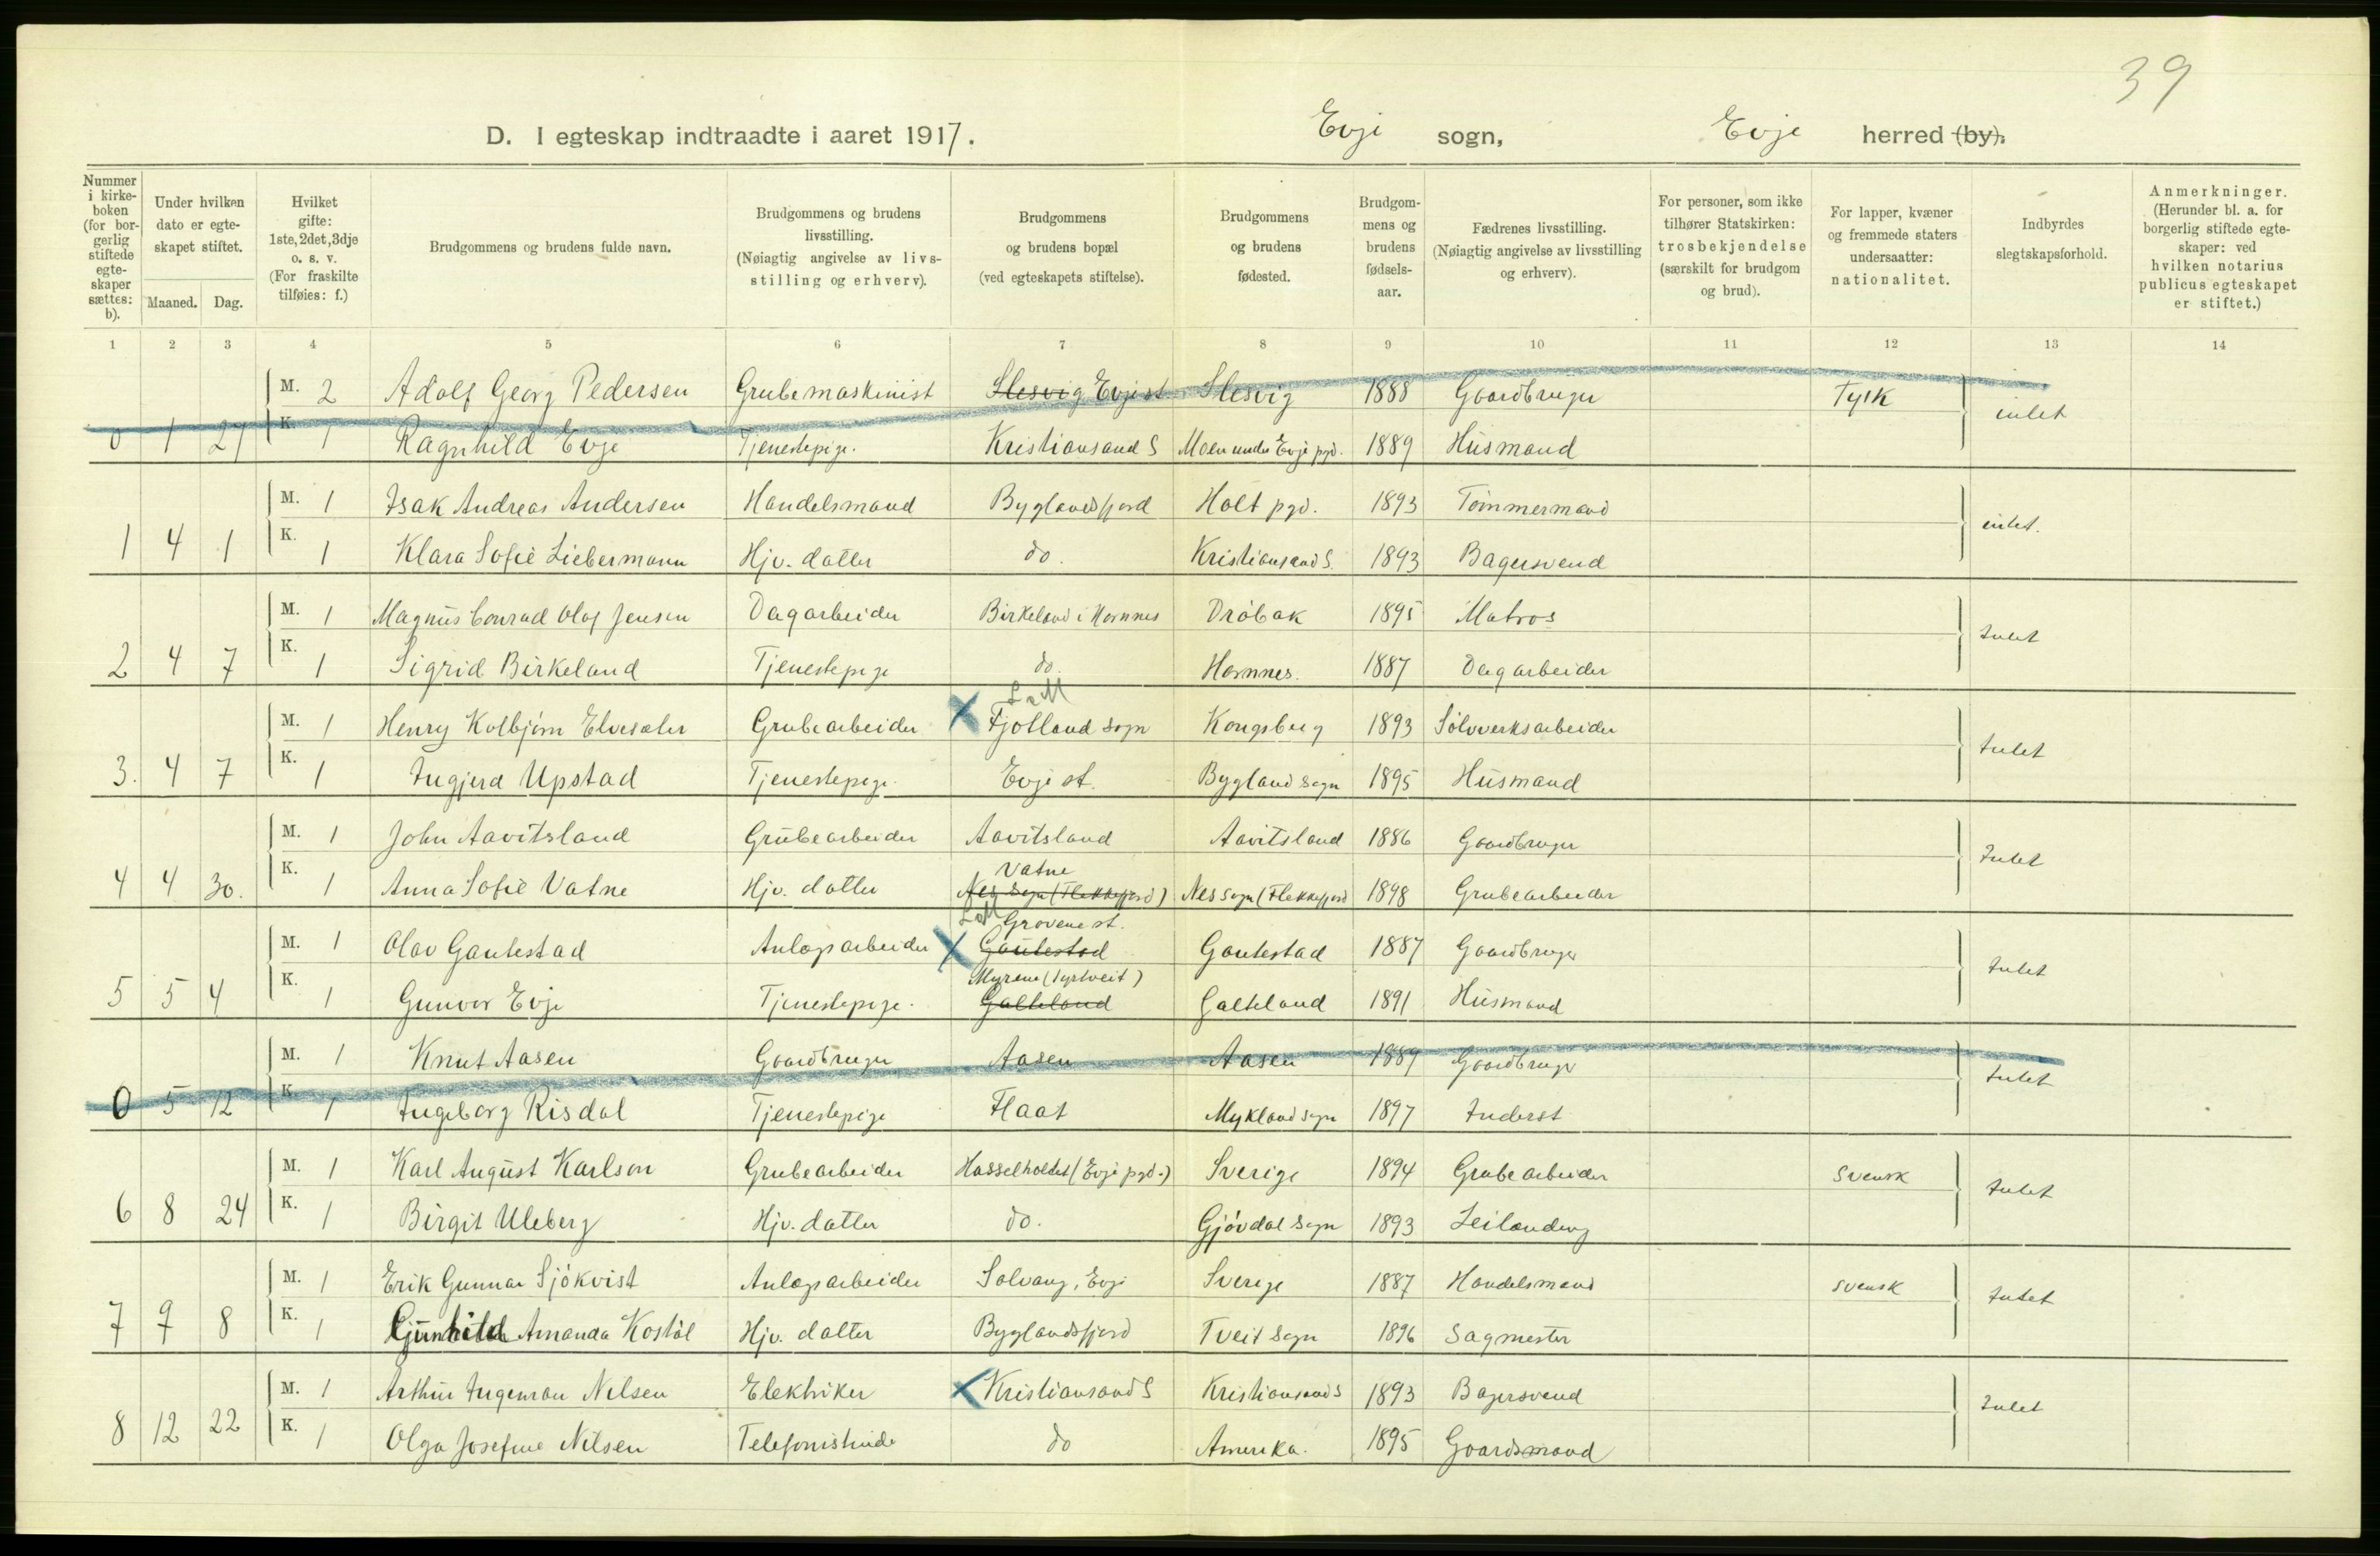 39
D. I egteskap indtraadte i aaret 1917. Evje sogn, Evje herred (by).
Nummer i kirkeboken (for borgerlig stiftede egteskaper sættes: b). Under hvilken dato er egteskapet stiftet. Maaned. Dag. Hvilket gifte: 1ste, 2det, 3dje o. s. v. (For fraskilte tilføies: f.) Brudgommens og brudens fulde navn. Brudgommens og brudens livsstilling. (Nøiagtig angivelse av livsstilling og erhverv). Brudgommens og brudens bopæl (ved egteskapets stiftelse). Brudgommens og brudens fødested. Brudgommens og brudens fødselsaar. Fædrenes livsstilling. (Nøiagtig angivelse av livsstilling og erhverv). For personer, som ikke tilhører Statskirken: trosbekjendelse (særskilt for brudgom og brud). For lapper, kvæner og fremmede staters undersaatter: nationalitet. Indbyrdes slegtskapsforhold. Anmerkninger. (Herunder bl. a. for borgerlig stiftede egteskaper: ved hvilken notarius publicus egteskapet er stiftet.)
1 2 3 4 5 6 7 8 9 10 11 12 13 14
M. 2 Adolf Georg Pedersen Grubemaskinist Slesvig Evje st Slesvig 1888 Gaardbruger Tysk intet
0 1 27 K. 1 Ragnhild Evje Tjenestepige. Kristiansand S Moen under Evje pgd. 1889 Husmand
M. 1 Isak Andreas Andersen Handelsmand Byglandsfjord Holt pgd. 1893 Tømmermand intet.
1 4 1 K. 1 Klara Sofie Liebermann Hjv. datter do. Kristiansand S. 1893 Bagersvend
M. 1 Magnus Conrad Olaf Jensen Dagarbeider Birkeland i Hornnes Drøbak 1895 Matros Intet
2 4 7 K. 1 Sigrid Birkeland Tjenestepige do. Hornnes. 1887 Dagarbeider
M. 1 Henry Kolbjørn Elvesæter Grubearbeider Fjotland sogn Kongsberg 1893 Sølvverksarbeider Intet
3. 4 7 K. 1 Ingjerd Upstad Tjenestepige. Evje st. Bygland sogn 1895 Husmand
M. 1 John Aavitsland Grubearbeider Aavitsland Aavitsland 1886 Gaardbruger Intet
Vatne
4 4 30. K. 1 Anna Sofie Vatne Hjv. datter Nes sogn (Flekkefjord) Nes sogn (Flekkefjord 1898 Grubearbeider
Grovene st.
M. 1 Olav Gautestad Anlægsarbeider Gautestad Gautestad 1887 Gaardbruger Intet
Myrene (Syrtveit)
5 5 4 K. 1 Gunvor Evje Tjenestepige. Galteland Galteland 1891 Husmand
M. 1 Knut Aasen Gaardbruger Aasen Aasen 1889 Gaardbruger Intet
0 5 12 K. 1 Ingeborg Risdal Tjenestepige Flaat Mykland sogn 1897 Inderst
M. 1 Karl August Karlson Grubearbeider Hasselholdet (Evje pgd.) Sverige 1894 Grubearbeider Svensk Intet
6 8 24 K. 1 Birgit Uleberg Hjv. datter do. Gjøvdal sogn 1893 Leilænding
M. 1 Erik Gunnar Sjökvist Anlægsarbeider Solvang, Evje Sverige 1887 Handelsmand svensk Intet
7 9 8 K. 1 Gunhild Amanda Kostøl Hjv. datter Byglandsfjord Tveit sogn 1896 Sagmester
M. 1 Arthur Ingeman Nilsen Elektriker Kristiansand S Kristiansand S 1893 Bagersvend Intet
8 12 22 K. 1 Olga Josefine Nilsen Telefonistinde do Amerika. 1895 Gaardsmand